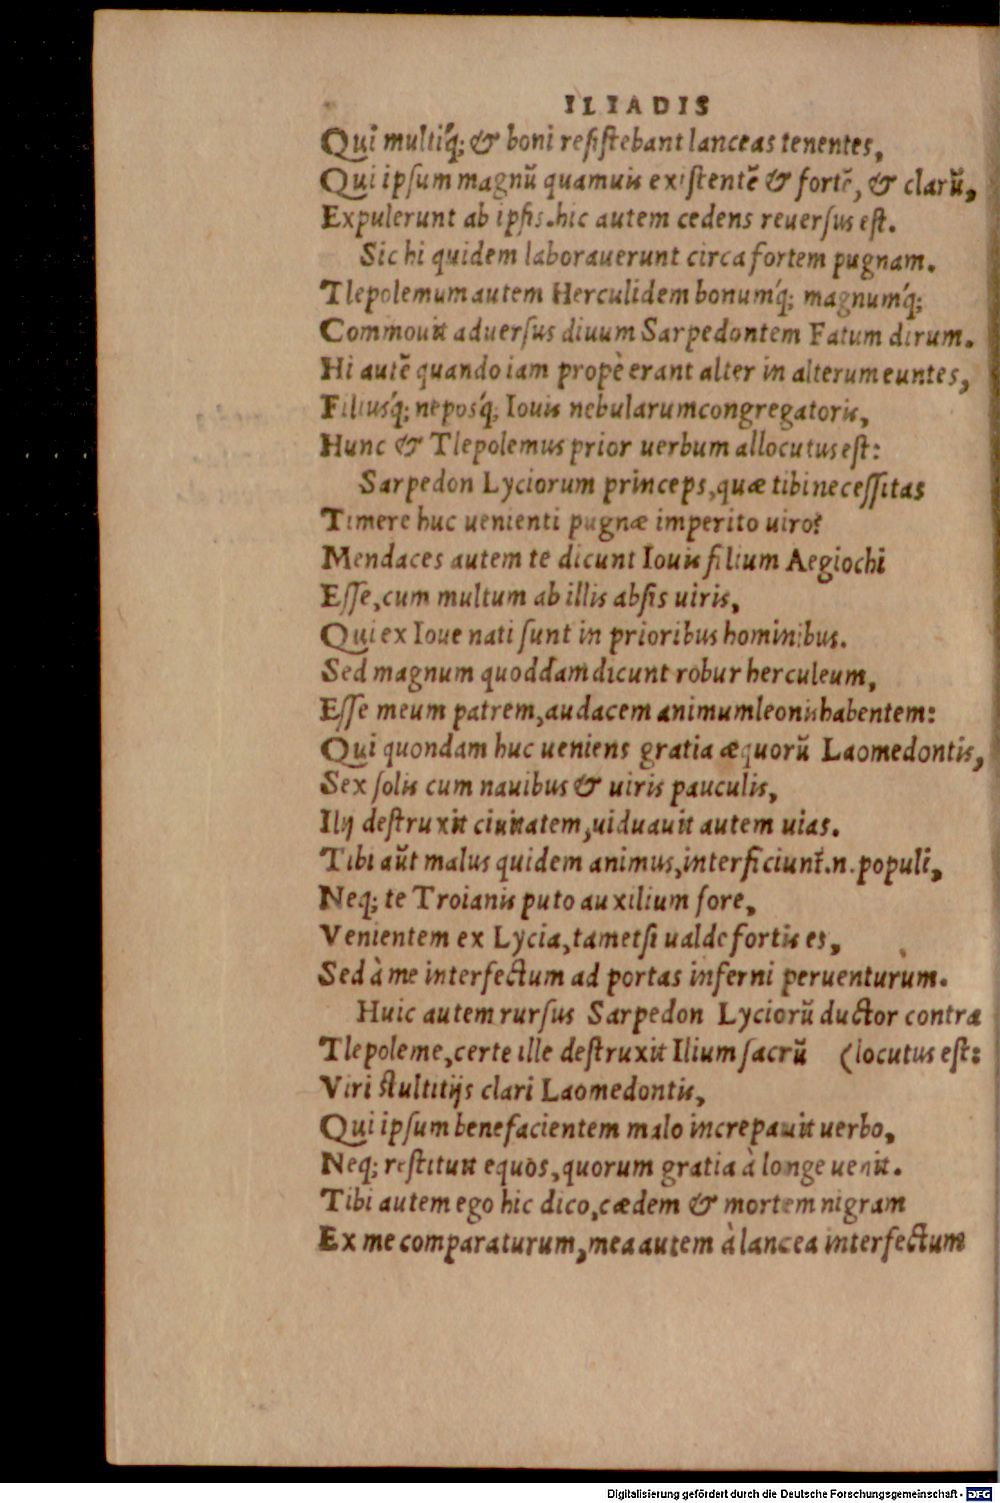 ILIADIS
Qui multiq́; & boni resistebant lanceas tenentes,
Qui ipsum magnũ quamuis existentẽ & fortẽ, & clarũ,
Expulerunt ab ipsis. hic autem cedens reuersus est.
Sic hi quidem laborauerunt circa fortem pugnam.
Tlepolemum autem Herculidem bonumq́; magnumq́;
Commouit aduersus diuum Sarpedontem Fatum dirum.
Hi autẽ quando iam propè erant alter in alterum euntes,
Filiusq́; neposq́; Iouis nebularum congregatoris,
Hunc & Tlepolemus prior uerbum allocutus est:
Sarpedon Lyciorum princeps, quæ tibi necessitas
Timere huc uenienti pugnæ imperito uiro?
Mendaces autem te dicunt Iouis filium Aegiochi
Esse, cum multum ab illis absis uiris,
Qui ex Ioue nati sunt in prioribus hominibus.
Sed magnum quoddam dicunt robur herculeum,
Esse meum patrem, audacem animum leonis habentem:
Qui quondam huc ueniens gratia æquorũ Laomedontis,
Sex solis cum nauibus & uiris pauculis,
Ilij destruxit ciuitatem, uiduauit autem uias.
Tibi aũt malus quidem animus, interficiunt̃.n. populi,
Neq; te Troianis puto auxilium fore,
Venientem ex Lycia, tametsi ualde fortis es,
Sed à me interfectum ad portas inferni peruenturum.
Huic autem rursus Sarpedon Lyciorũ ductor contra
Tlepoleme, certe ille destruxit Ilium sacrũ (locutus est:
Viri stultitijs clari Laomedontis,
Qui ipsum benefacientem malo increpauit uerbo,
Neq; restituit equos, quorum gratia à longe uenit.
Tibi autem ego hic dico, cædem & mortem nigram
Ex me comparaturum, mea autem à lancea interfectum
Digitalisierung gefördert durch die Deutsche Forschungsgemeinschaft - DFG